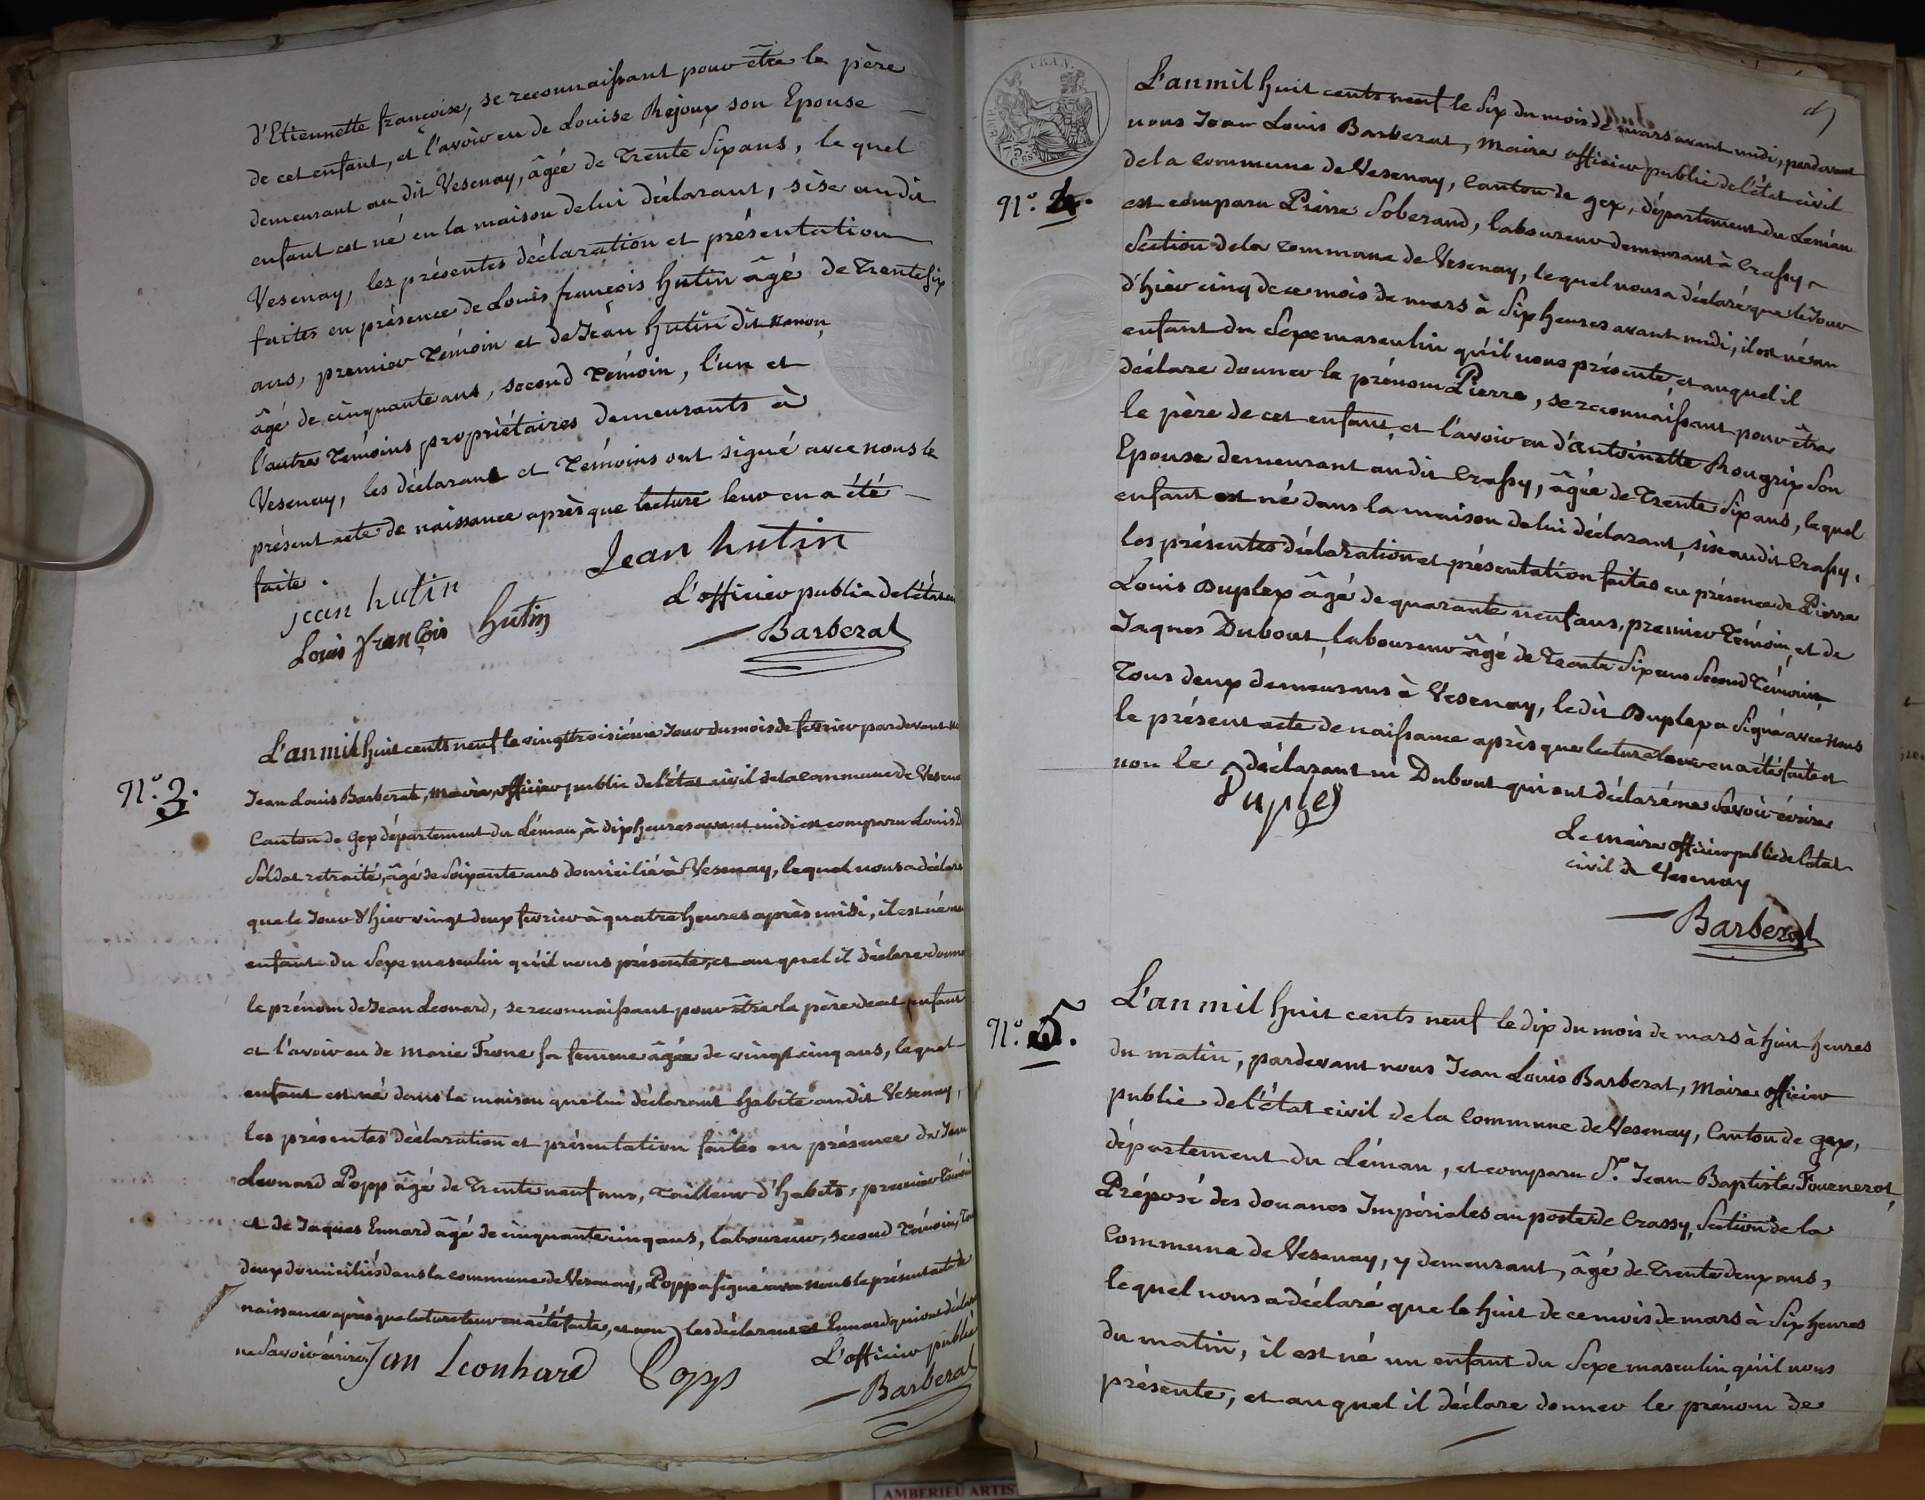 d'Etiennette françoise, se reconnaissant pour être le père
de cet enfant, et l'avoir eu de Louise Rejoux son Epouse
demeurant au dit Vesenay, âgée de trente six ans, lequel
enfant est né en la maison de lui déclarant, sise audit
Vesenay, les présentes déclaration et présentation
faites en présence de Louis françois hutin âgé de trente six
ans, premier témoin et de Jean hutin dit
âgé de cinquante ans, second témoin, l'un et
l'autre témoins propriétaires demeurants à
Vesenay, les déclarant et témoins ont signé avec nous le
présent acte de naissance après que lecture leur en a été
faite.
Jean hutin
jean hutin
Louis françois hutin
L'officier public de l'état
Barberat
N.° 3.
L'an mil huit cents neuf le vingt troisième Jour du mois de fevrier pardevant
Jean Louis Barberat, Maire, officier public de l'état civil de la commune de
Canton de Gex département du Léman, à dix heures avant midi est comparu Louis
Soldat retraité, âgé de soixante ans domicilié à Vesenay, lequel nous a déclaré
que le Jour d'hier vingt deux fevrier à quatre heures après midi, il est né
enfant du Sexe masculin qu'il nous présente, et au quel il déclare
le prénom de Jean Leonard, se reconnaissant pour être le père de cet enfant
et l'avoir eu de Marie Trone sa femme âgée de vingt cinq ans, lequel
enfant est né dans la maison que lui déclarant habite audit Vesenay,
les présentes déclaration et présentation faites en présence de Jean
Leonard Popp âgé de trente neuf ans, tailleur d'habits, premier témoin
et de Jaques Eunard âgé de cinquante cinq ans, laboureur, second témoin,
deux domiciliés dans la commune de Vesenay, Popp a signé avec nous le présent acte de
naissance après que lecture leur en a été faite, et non les déclarant et Eunard qui ont
ne Savoir écrire
Jan Leonhard Popp
L'officier public
Barberat
N.° 4.
L'an mil huit cents neuf le six du mois de mars avant midi, pardevant
nous Jean Louis Barberat, Maire officier public de l'état civil
de la commune de Vesenay, Canton de gex, département du Leman
est comparu Pierre Soberand, laboureur demeurant à Crassy,
Section de la commune de Vesenay, lequel nous a déclaré que le Jour
d'hier cinq de ce mois de mars à six heures avant midi, il est né un
enfant du Sexe masculin qu'il nous présente, et auquel il
déclare donner le prénom Pierre, se reconnaissant pour être
le père de cet enfant, et l'avoir eu d'antoinette Rougrix Son
Epouse demeurant audit Crassy, âgée de trente Six ans, lequel
enfant est né dans la maison de lui déclarant, sise audit Crassy,
les présentes déclaration et présentation faites en présence de Pierre
Louis Duplex âgé de quarante neuf ans, premier témoin, et de
Jaques Dubout, laboureur âgé de trente six ans Second témoin,
tous deux demeurans à Vesenay, le dit Duplex a Signé avec nous
le présent acte de naissance après que lecture leur en a été faite et
non le déclarant ni Dubout qui ont déclaré ne Savoir écrire
Duplex
Le maire officier public de l'état
civil de Vesenay
Barberat
N.° 5.
L'an mil huit cents neuf le dix du mois de mars à huit heures
du matin, pardevant nous Jean Louis Barberat, Maire officier
public de l'état civil de la Commune de Vesenay, Canton de gex,
département du Léman, est comparu S.r Jean Baptiste Fournerot,
Préposé des douanes Impériales au poste de Crassy, Section de la
Commune de Vesenay, y demeurant, âgé de trente deux ans,
lequel nous a déclaré que le huit de ce mois de mars à Six heures
du matin, il est né un enfant du Sexe masculin qu'il nous
présente, et au quel il déclare donner le prénom de
AMBERIEU ARTIS